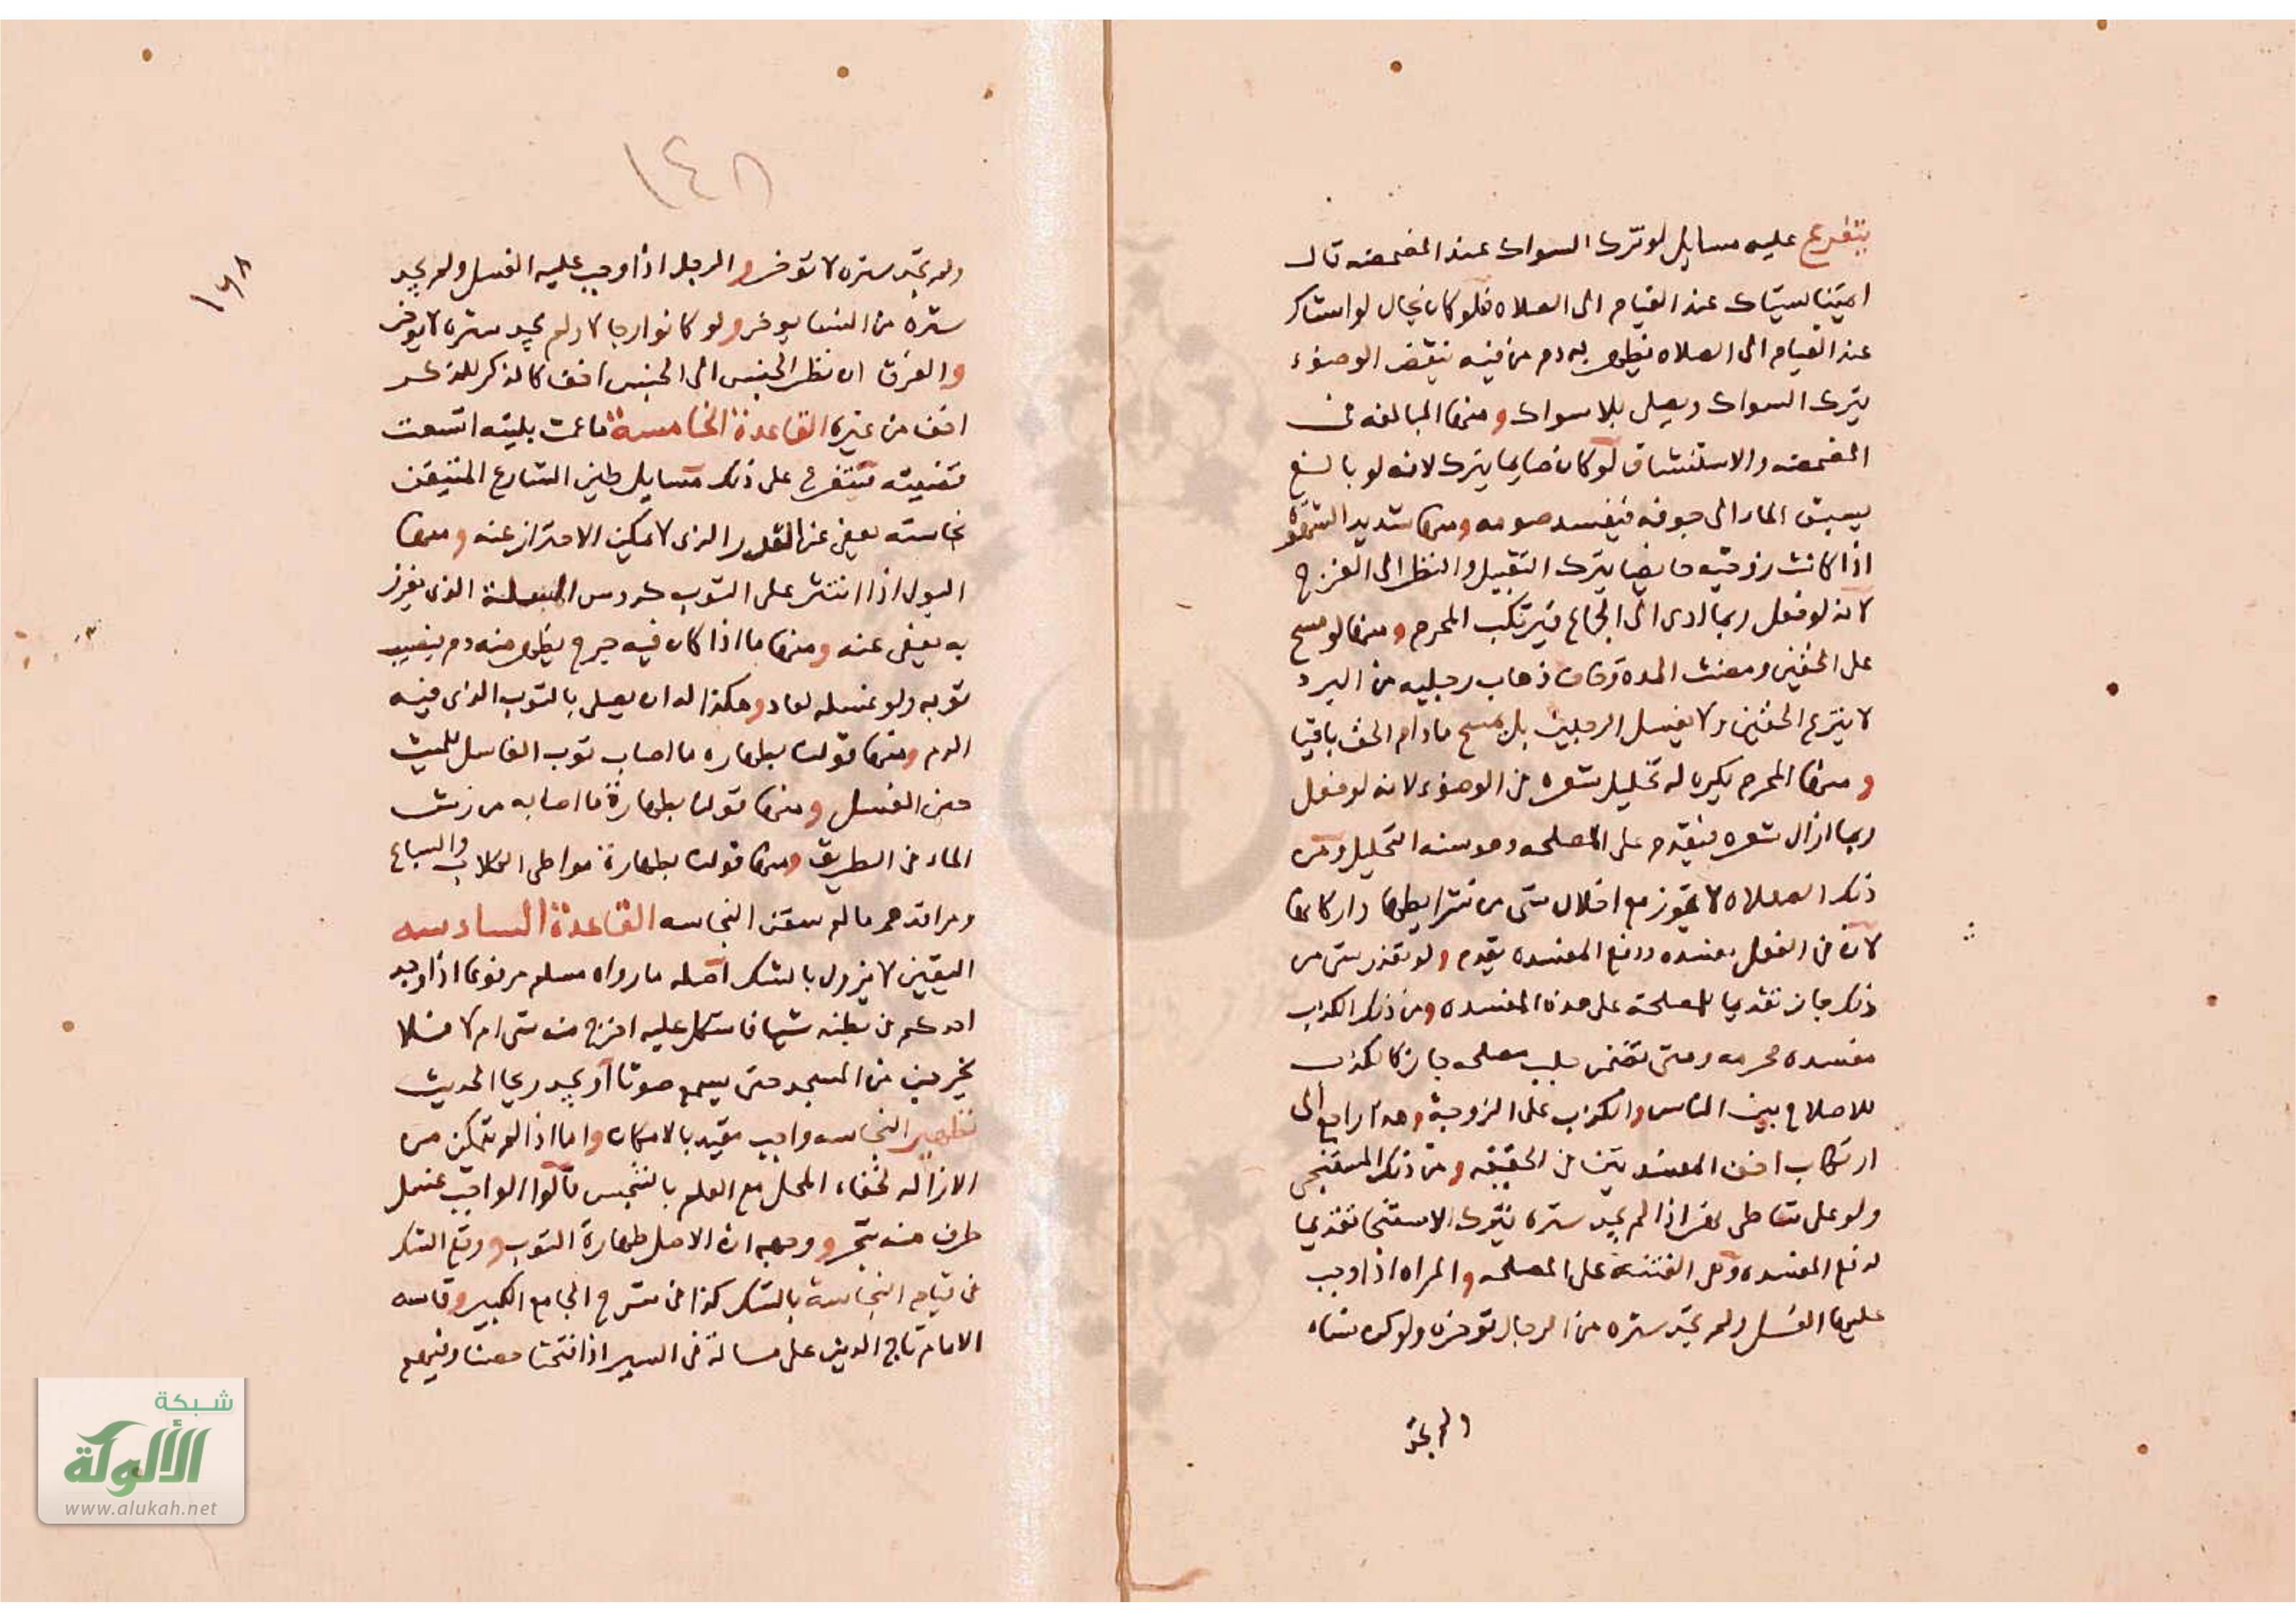 يتفرع عليه مسايل لو ترك السواك عند المضمضه قال
ايمتنا يستاك عند القيام الى الصلاه فلو كان بحال لو استاك
عند القيام الى الصلاه يظهر به دم من فيه ينقض الوضوء
يترك السواك ويصلى بلا سواك ومنها المبالغه فى
المضمضه والاستنشاق لو كان صايما يترك لانه لو بالغ
يسبق الماء الى جوفه فيفسد صومه ومنها شديد الشهوة
اذا كانت زوجته حايضا يترك التقبيل والنظر الى الفرج
لانه لو فعل ربما ادى الى الجماع فيرتكب المحرم ومنها لو مسح
على الخفين ومضت المده وخاف ذهاب رجليه من البرد
لا ينزع الخفين ولا يغسل الرجلين بل يمسح مادام الخف باقيا
ومنها المحرم يكره له تخليل شعره فى الوضوء لانه لو فعل
ربما ازال شعره فيقدم على المصلحه وهو سنه التخليل ومن
ذلك الصلاه لا تجوز مع اخلال شى من شرايطها واركانها
لان فى الفعل مفسده ودفع المفسده يقدم ولو تعذر شى من
ذلك جاز تقديما للمصلحة على هذه المفسده ومن ذلك الكذب
مفسده محرمه ومتى تضمن جلب مصلحه جاز كالكذب
للاصلاح بين الناس والكذب على الزوجة وهذا راجع الى
ارتكاب اخف المفسدتين فى الحقيقه ومن ذلك المستنجى
ولو على شاطى نهر اذا لم يجد ستره يترك الاستنجا تقديما
لدفع المفسده وهى الفتنه على المصلحه والمراه اذا وجب
عليها الغسل ولم تجد ستره من الرجال توخره ولو كن نساء
ولم تجد
١٤٨
١٤٨
ولم تجد ستره لا توخر والرجل اذا وجب عليه الغسل ولم يجد
ستره من النسا يوخر ولو كانوا رجالا ولم يجد ستره لا يوخر
والفرق ان نظر الجنس الى الجنس اخف كالذكر للذكر
اخف من غيره القاعدة الخامسة ما عمت بليته اتسعت
قضيته يتفرع على ذلك مسايل طين الشارع المتيقن
نجاسته يعفى عن القدر الذى لا يمكن الاحتراز عنه ومنها
البول اذا انتشر على الثوب كروس المسلة الذى يغرز
به يعفى عنه ومنها ما اذا كان فيه جرح يظهر منه دم يصيب
ثوبه ولو غسله لعاد وهكذا له ان يصلى بالثوب الذى فيه
الدم ومنها قولنا بطهاره ما اصاب ثوب الغاسل للميت
حين الغسل ومنها قولنا بطهارة ما اصابه من رش
الماء فى الطريق ومنها قولنا بطهارة مواطى الكلاب والسباع
ومراقدهم ما لم ستقن النجاسه القاعدة السادسه
اليقين لا يزول بالشك اصله ما رواه مسلم مرفوعا اذا وجد
احدكم فى بطنه شيا فاشكل عليه اخرج منه شى ام لا فلا
يخرجن من المسجد حتى يسمع صوتا او يجد ريحا الحديث
تطهير النجاسه واجب مقيد بالامكان واما اذا لم يتمكن من
الازاله لخفاء المحل مع العلم بالتنجس قالوا الواجب غسل
طرف منه بتحر ووجهه ان الاصل طهارة الثوب ووقع الشك
فى قيام النجاسة بالشك كذا فى شرح الجامع الكبير وقاسه
الامام تاج الدين على مسالة فى السير اذا فتحنا حصنا وفيهم
شبكة
الألوكة
www.alukah.net